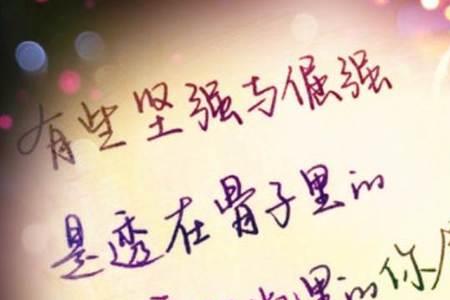 有些坚强与倔强
是透在骨子里的
里的你